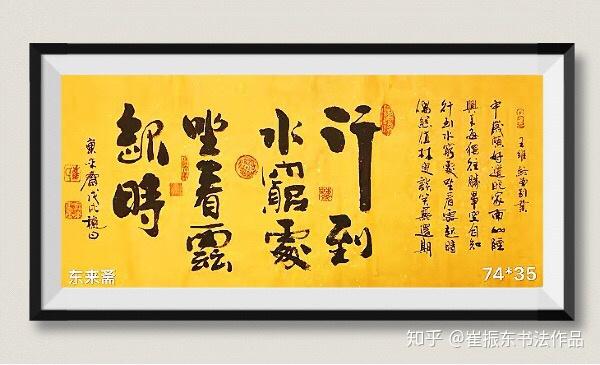 王維終南別業
中歲頗好道晚家南山陲
興来每獨往勝事空自知
行到水窮處坐看雲起時
偶然值林叟談笑無還期
行到
水窮處
坐看雲
起時
東来齋戊戌
东来斋
74*35
知乎 @崔振东书法作品